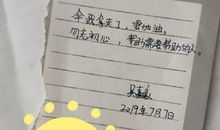 伞我拿走了，要加油，
勿忘初心，帮助需要帮助的人。
2019年7月7日